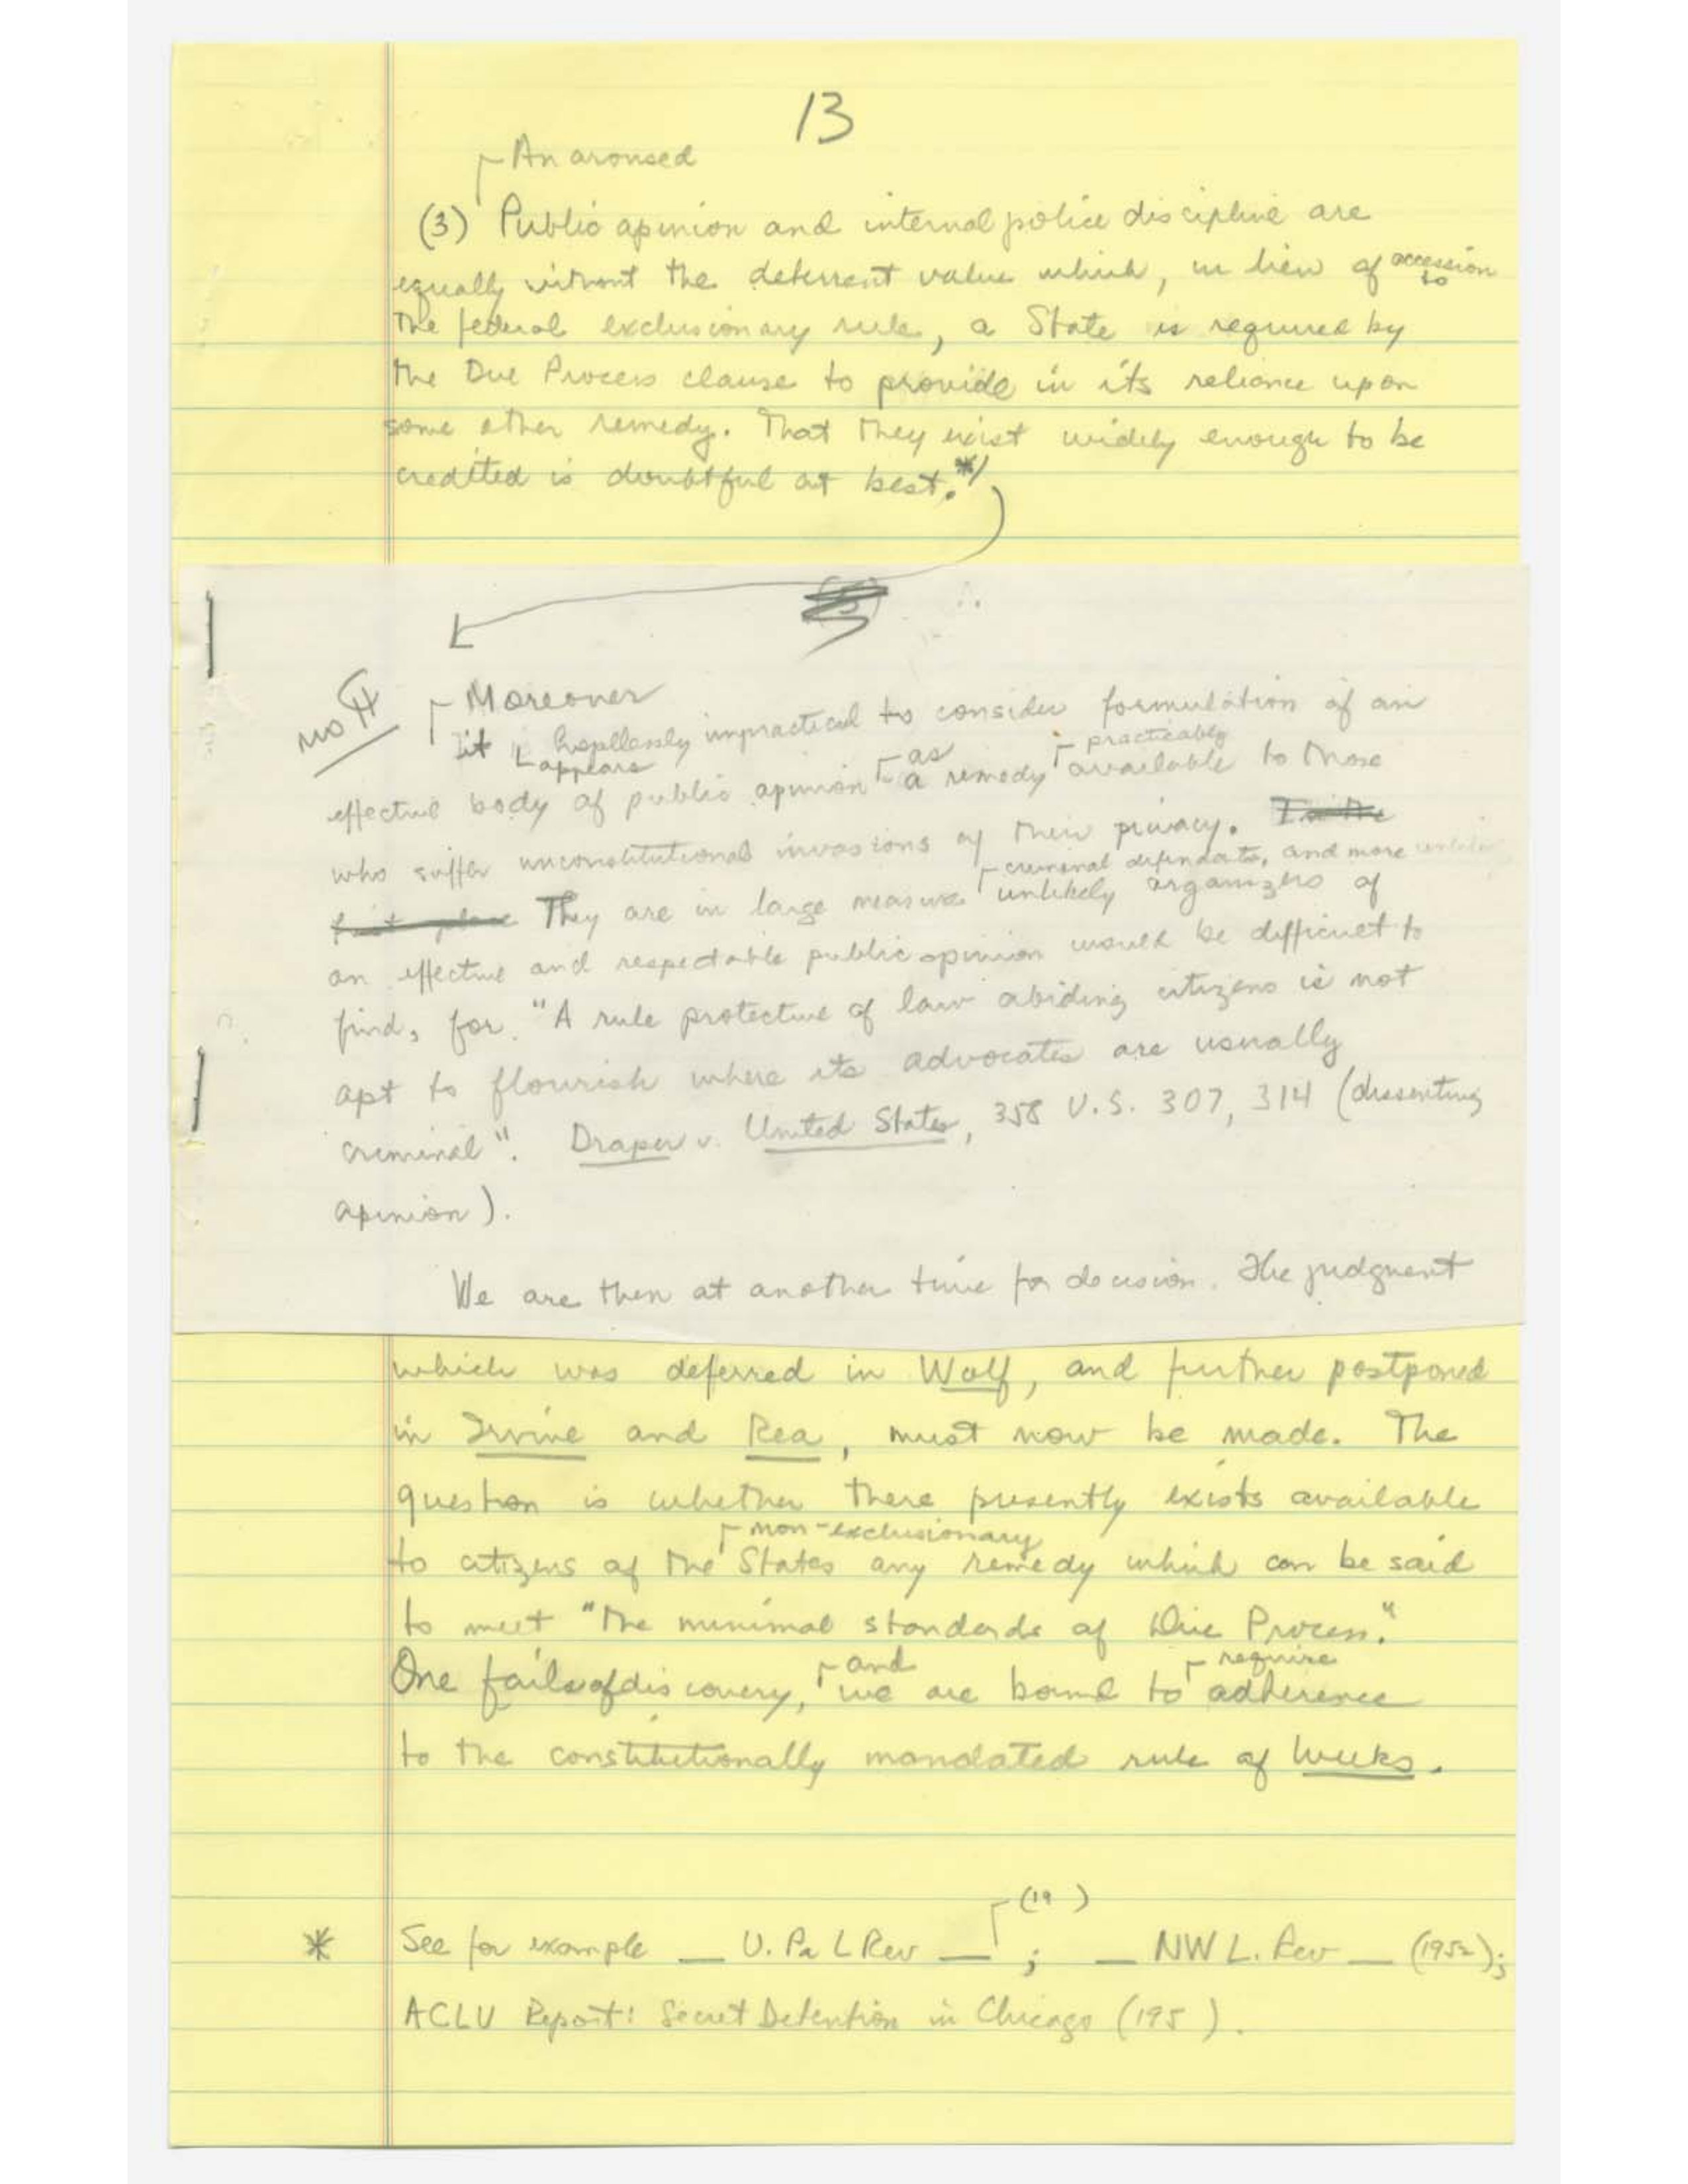 13
An aroused
(3) Public opinion and internal police discipline are
equally without the deterrent value which, in lieu of accession to
the federal exclusionary rule, a State is required by
the Due Process clause to provide in its reliance upon
some other remedy. That they exist widely enough to be
credited is doubtful at best.*/
no ¶
Moreover
it appears hopelessly impractical to consider formulation of an
effective body of public opinion as a remedy practicably available to those
who suffer unconstitutional invasions of their privacy. In the
first place They are in large measure criminal defendants, and more unlikely
unlikely organizers of
an effective and respectable public opinion would be difficult to
find, for "A rule protective of law abiding citizens is not
apt to flourish where its advocates are usually
criminal". Draper v. United States, 358 U.S. 307, 314 (dissenting
opinion).
We are then at another time for decision. The judgment
which was deferred in Wolf, and further postponed
in Irvine and Rea, must now be made. The
question is whether there presently exists available
to citizens of the States any non-exclusionary remedy which can be said
to meet "the minimal standards of Due Process."
One fails of discovery, and we are bound to require adherence
to the constitutionally mandated rule of Weeks.
* See for example _ U. Pa L Rev _ (19 ); _ NW L. Rev _ (1952);
ACLU Report: Secret Detention in Chicago (195 ).